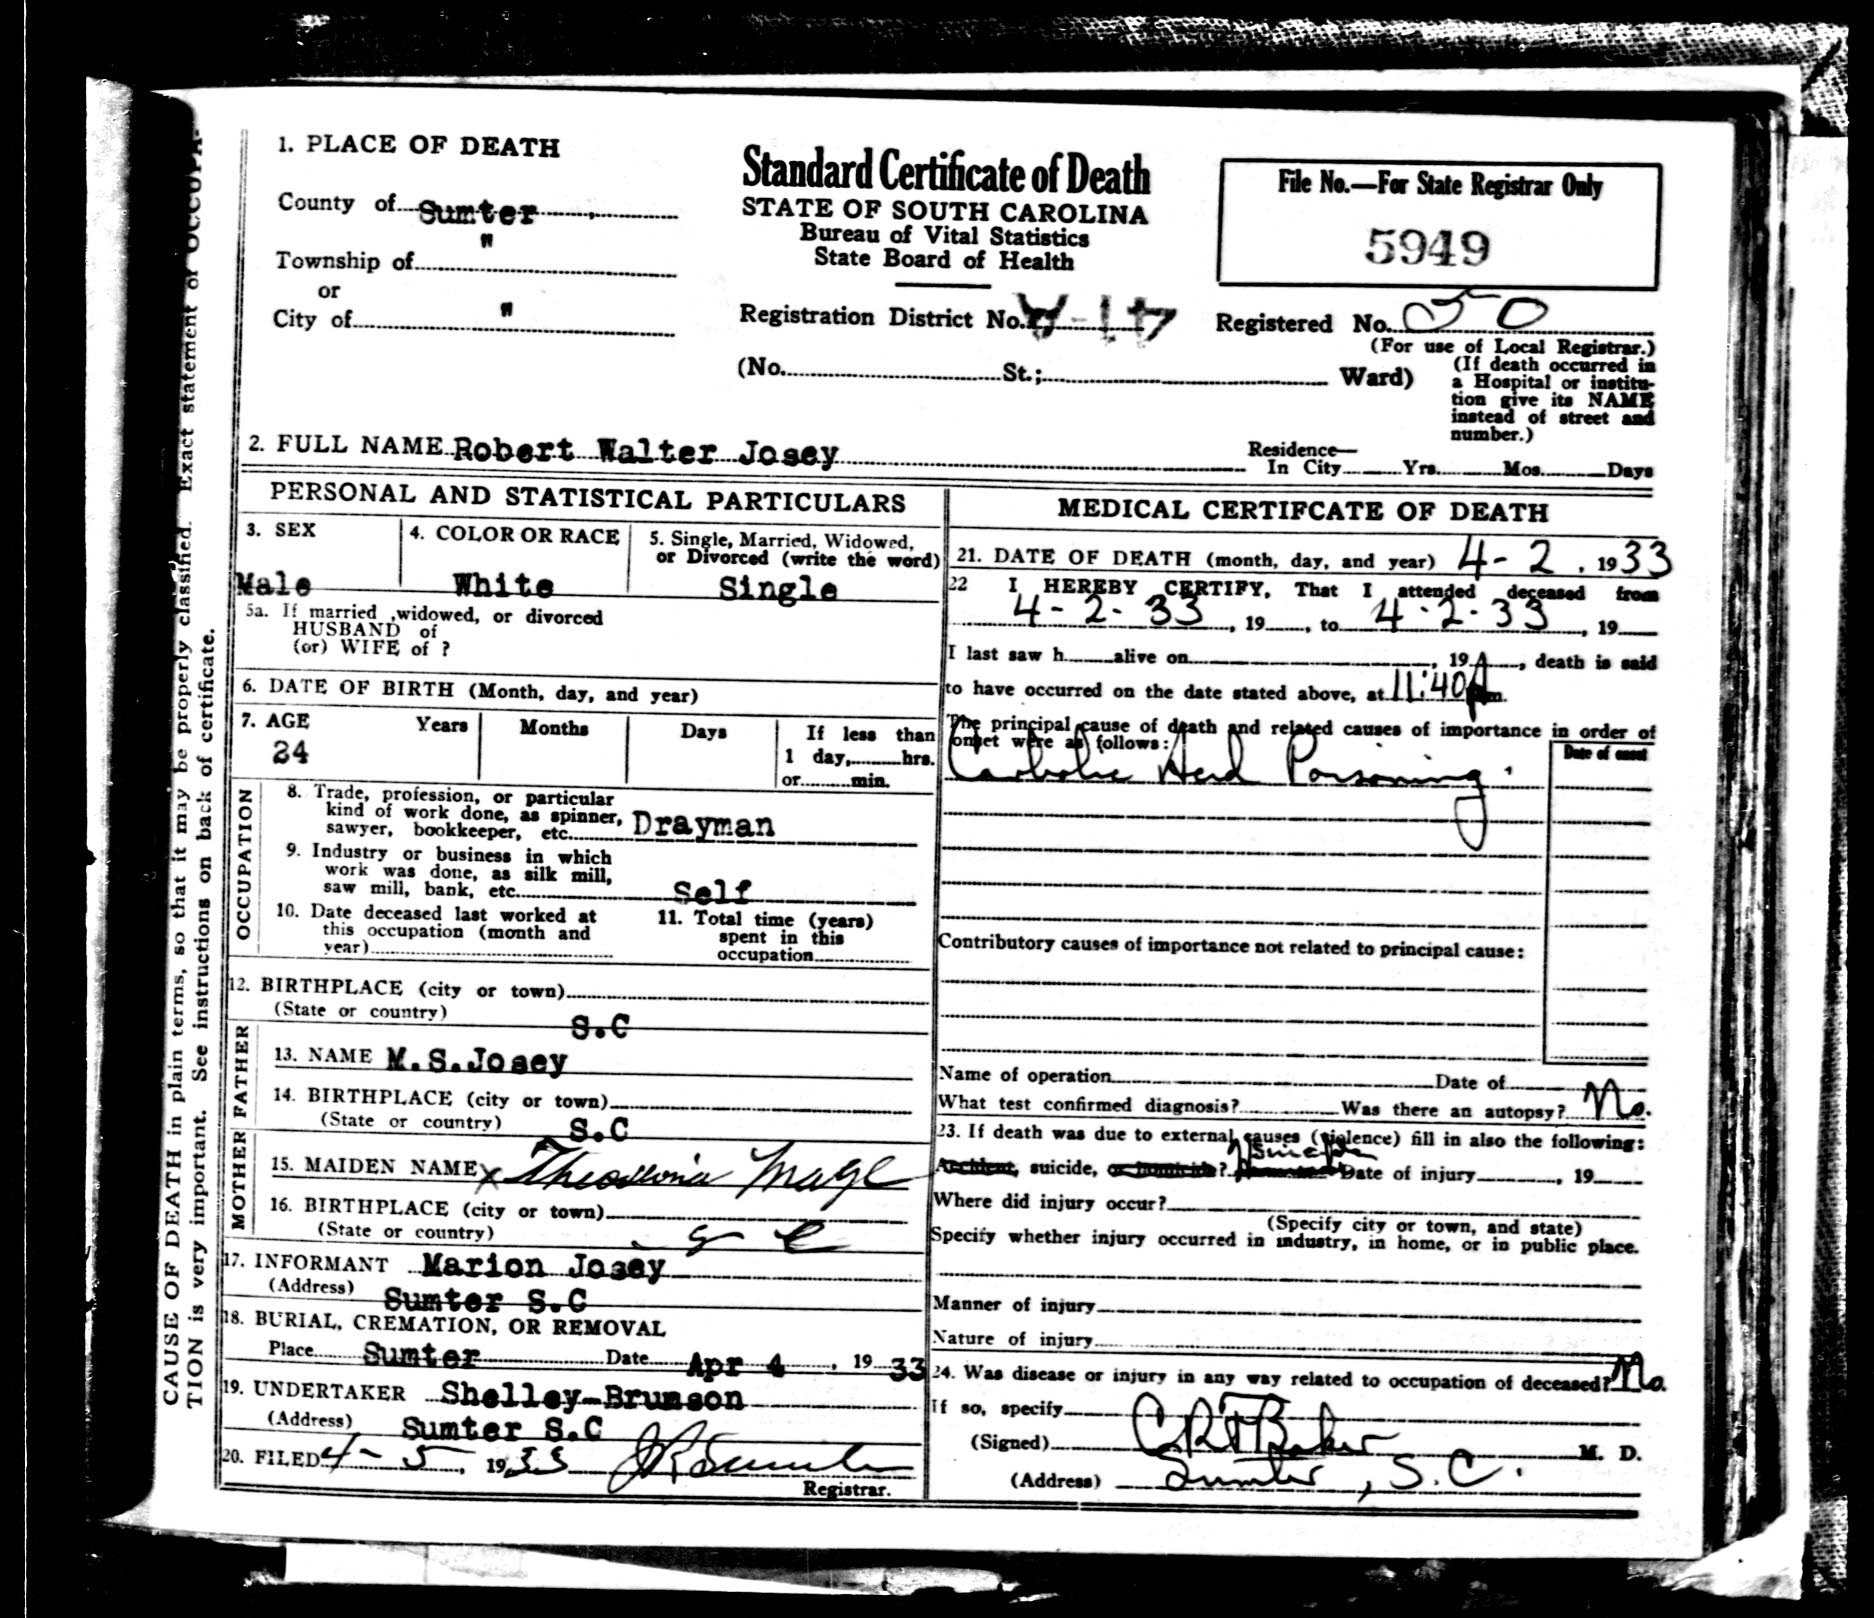 CAUSE OF DEATH in plain terms, so that it may be properly classified. Exact statement of OCCUPA-
TION is very important. See instructions on back of certificate.
1. PLACE OF DEATH
County of Sumter
Township of "
or
City of "
Standard Certificate of Death
STATE OF SOUTH CAROLINA
Bureau of Vital Statistics
State Board of Health
File No.—For State Registrar Only
5949
Registration District No.
Registered No. 50
(For use of Local Registrar.)
(No. St.; Ward)
(If death occurred in
a Hospital or institu-
tion give its NAME
instead of street and
number.)
2. FULL NAME Robert Walter Josey
Residence—
In City Yrs. Mos. Days
PERSONAL AND STATISTICAL PARTICULARS
3. SEX
Male
4. COLOR OR RACE
White
5. Single, Married, Widowed,
or Divorced (write the word)
Single
5a. If married ,widowed, or divorced
HUSBAND of
(or) WIFE of ?
6. DATE OF BIRTH (Month, day, and year)
7. AGE Years Months Days If less than
24 1 day, hrs.
or min.
OCCUPATION
8. Trade, profession, or particular
kind of work done, as spinner,
sawyer, bookkeeper, etc. Drayman
9. Industry or business in which
work was done, as silk mill,
saw mill, bank, etc. Self
10. Date deceased last worked at
this occupation (month and
year)
11. Total time (years)
spent in this
occupation
12. BIRTHPLACE (city or town)
(State or country) S.C
FATHER
13. NAME M.S.Josey
14. BIRTHPLACE (city or town)
(State or country) S.C
MOTHER
15. MAIDEN NAME x
16. BIRTHPLACE (city or town)
(State or country) S C
17. INFORMANT Marion Josey
(Address) Sumter S.C
18. BURIAL, CREMATION, OR REMOVAL
Place Sumter Date Apr 4, 1933
19. UNDERTAKER Shelley-Brunson
(Address) Sumter S.C
20. FILED 4-5, 1933
Registrar.
MEDICAL CERTIFCATE OF DEATH
21. DATE OF DEATH (month, day, and year) 4-2, 1933
22 I HEREBY CERTIFY, That I attended deceased from
4-2-33, 19 , to 4-2-33, 19
I last saw h alive on , 19 , death is said
to have occurred on the date stated above, at 11:40 A m.
The principal cause of death and related causes of importance in order of
onset were as follows:
Date of onset
Carbolic Acid Poisoning.
Contributory causes of importance not related to principal cause:
Name of operation Date of
What test confirmed diagnosis? Was there an autopsy? No.
23. If death was due to external causes (violence) fill in also the following:
Suicide
Accident, suicide, or homicide? Date of injury , 19
Where did injury occur?
(Specify city or town, and state)
Specify whether injury occurred in industry, in home, or in public place.
Manner of injury
Nature of injury
24. Was disease or injury in any way related to occupation of deceased? No.
If so, specify
(Signed) Baker M. D.
(Address) Sumter, S.C.